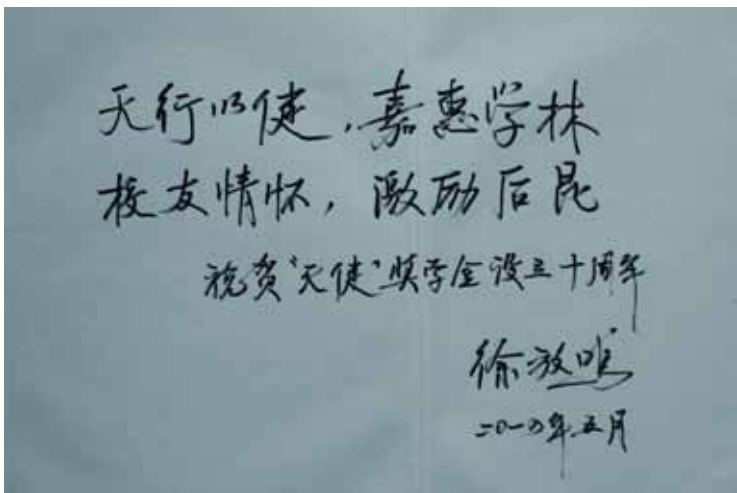 天行以健，嘉惠学林
校友情怀，激励后昆
祝贺“天健”奖学金设立十周年
徐放鸣
二〇一 年五月